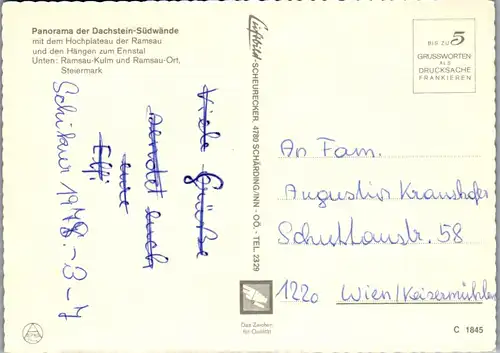 Panorama der Dachstein-Südwände
mit dem Hochplateau der Ramsau
und den Hängen zum Ennstal
Unten: Ramsau-Kulm und Ramsau-Ort,
Steiermark
Viele Grüße
sendet euch
eure
Elfi
Schikurs 1978.-3-7
Luftbild-SCHEURECKER, 4780 SCHÄRDING/INN - O.Ö. - TEL. 2329
BIS ZU 5
GRUSSWORTEN
ALS
DRUCKSACHE
FRANKIEREN
An Fam.
Augustin Kraushofer
Schüttaustr. 58
1220 Wien/Kaisermühlen
Das Zeichen
für Qualität
C 1845